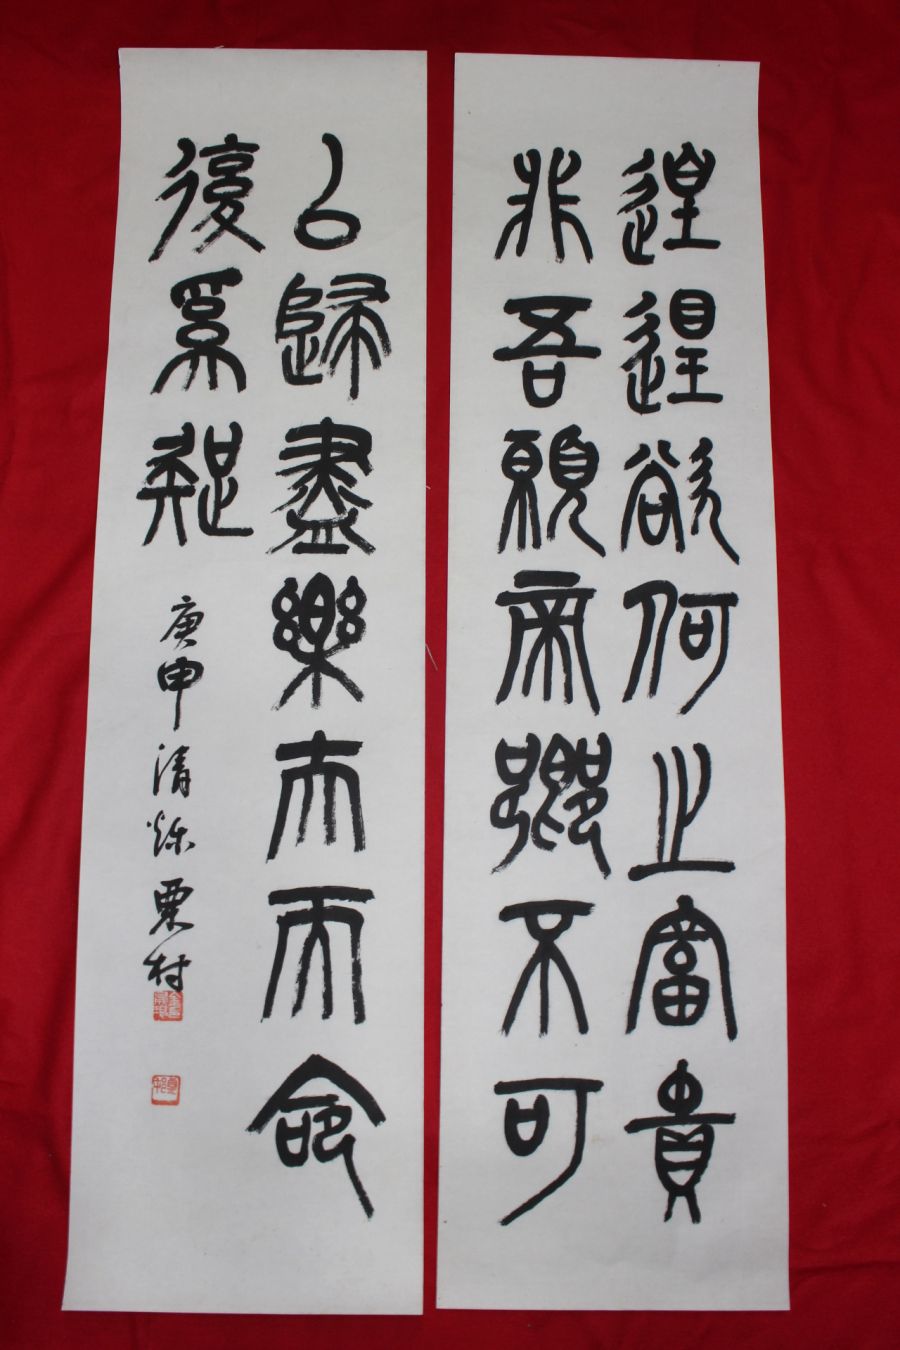 遑遑欲何之富貴
非吾願帝鄉不可
以歸盡樂夫天命
復奚疑
庚申清秌栗村